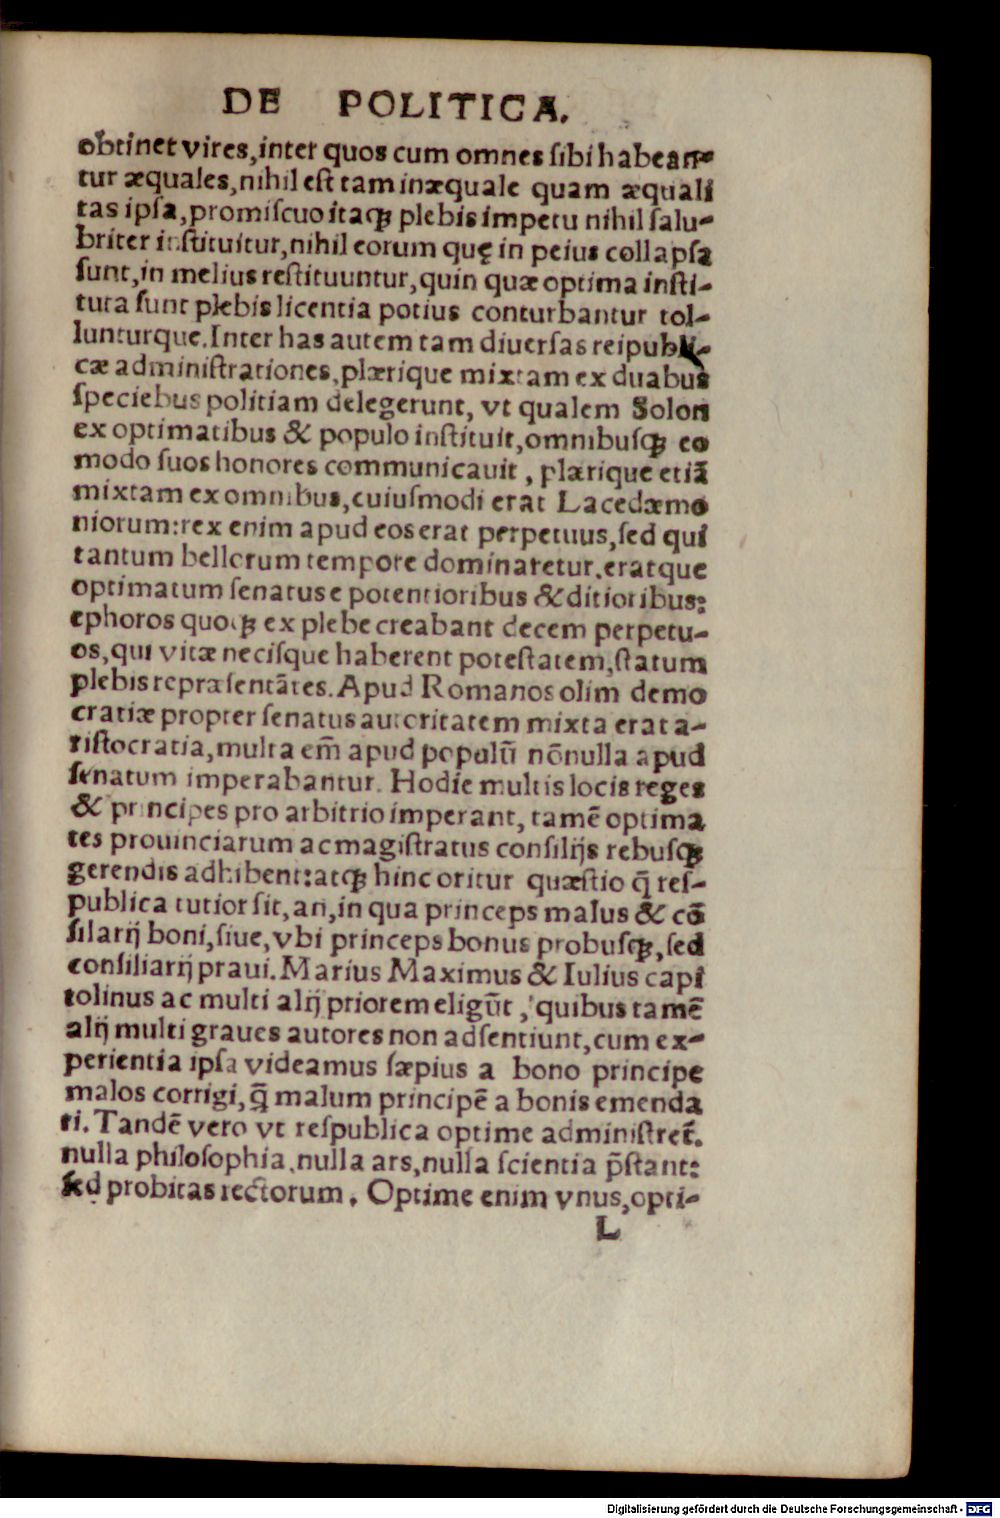 DE POLITICA.
obtinet vires,inter quos cum omnes ſibi habean⸗
tur æquales,nihil eſt tam inæquale quam æquali
tas ipſa,promiſcuo itaqꝫ plebis impetu nihil ſalu⸗
briter inſtituitur,nihil eorum quę in peius collapſa
ſunt,in melius reſtituuntur,quin quæ optima inſti⸗
tuta ſunt plebis licentia potius conturbantur tol⸗
lunturque.Inter has autem tam diuerſas reipubli⸗
cæ adminiſtrationes,plærique mixtam ex duabus
ſpeciebus politiam delegerunt, vt qualem Solon
ex optimatibus & populo inſtituit,omnibuſqꝫ eo
modo ſuos honores communicauit, plærique etiã
mixtam ex omnibus,cuiuſmodi erat Lacedæmo
niorum:rex enim apud eos erat perpetuus,ſed qui
tantum bellorum tempore dominaretur.eratque
optimatum ſenatus e potentioribus & ditioribus:
ephoros quoqꝫ ex plebe creabant decem perpetu⸗
os,qui vitæ neciſque haberent poteſtatem,ſtatum
plebis repræſentãtes.Apud Romanos olim demo
cratiæ propter ſenatus autoritatem mixta erat a⸗
riſtocratia,multa em̃ apud populũ nõnulla apud
ſenatum imperabantur. Hodie multis locis reges
& principes pro arbitrio imperant, tamẽ optima
tes prouinciarum ac magiſtratus conſilijs rebuſqꝫ
gerendis adhibent:atqꝫ hinc oritur quæſtio q̃ reſ⸗
publica tutior ſit,an,in qua princeps malus & cõ
ſilarij boni,ſiue,vbi princeps bonus probuſqꝫ,ſed
conſiliarij praui.Marius Maximus & Iulius capi
tolinus ac multi alij priorem eligũt, quibus tamẽ
alij multi graues autores non adſentiunt,cum ex⸗
perientia ipſa videamus ſæpius a bono principe
malos corrigi,q̃ malum principẽ a bonis emenda
ri.Tandẽ vero vt reſpublica optime adminiſtret̃.
nulla philoſophia,nulla ars,nulla ſcientia p̃ſtant:
ſed probitas rectorum. Optime enim vnus,opti⸗
L
Digitalisierung gefördert durch die Deutsche Forschungsgemeinschaft - DFG